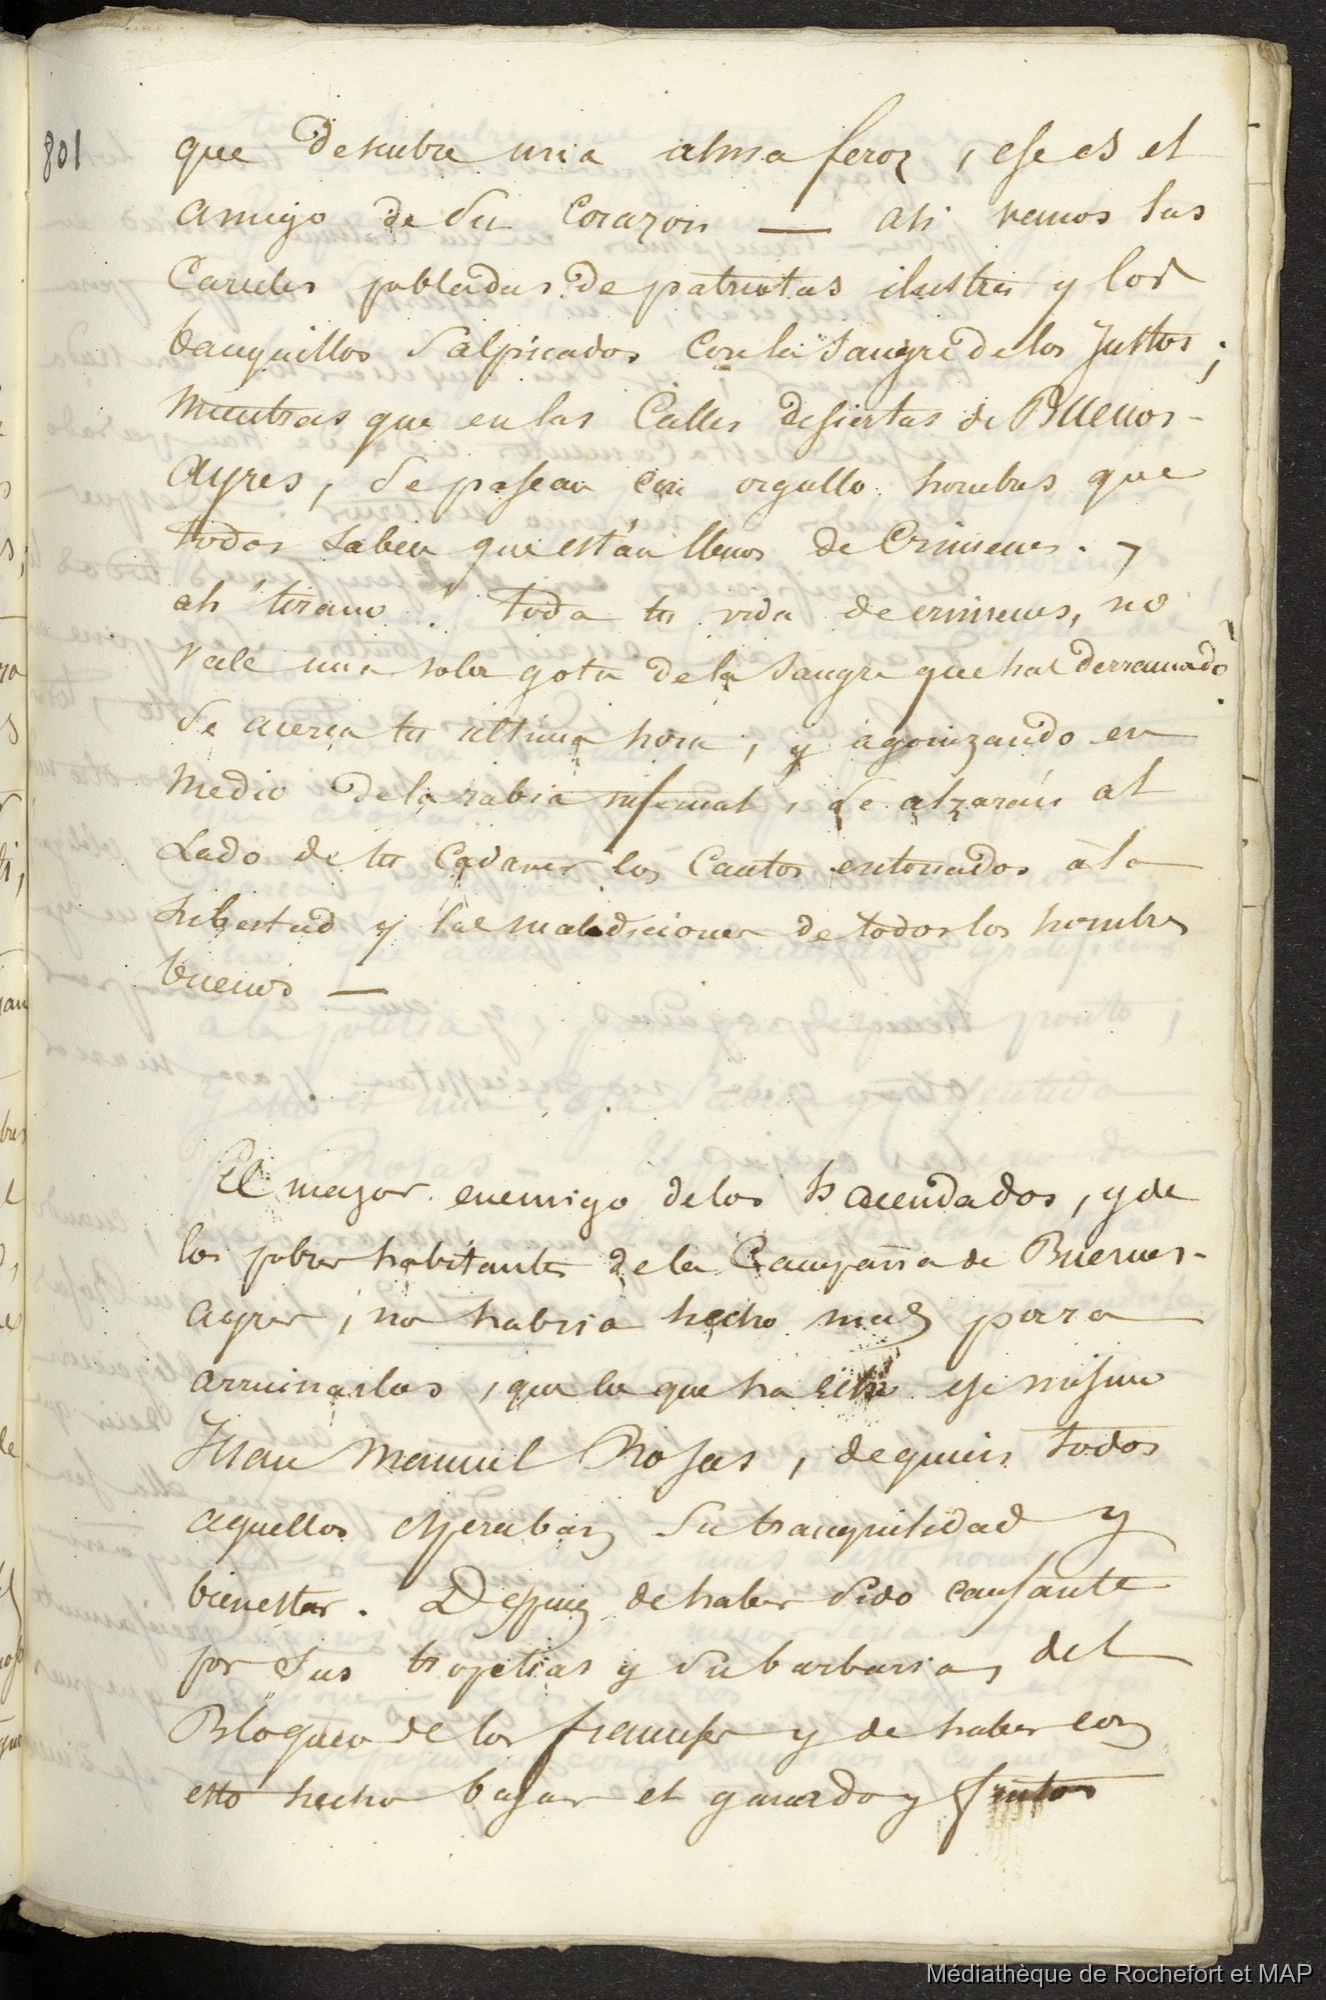 801
que descubre una alma feroz, ese es el
amigo de su corazon — ahi vemos las
Carceles pobladas de patriotas ilustres y los
banquillos salpicados con la sangre de los Justos;
mientras que en las Calles desiertas de Buenos-
ayres, se pasean con orgullo hombres que
todos saben que están llenos de Crimenes. y
ah tirano! toda tu vida de crimenes, no
vale una sola gota de la sangre que has derramado!
se acerca tu ultima hora, y agonizando en
medio de la rabia infernal, se alzarán al
Lado de tu Cadaver los Cantos entonados à la
Libertad y las maldiciones de todos los hombres
buenos —
El mayor enemigo de los hacendados, y de
los pobres habitantes de la Campaña de Buenos-
ayres, no habria hecho mas para
arruinarlos, que lo que ha hecho ese mismo
Juan Manuel Rosas, de quien todos
aquellos esperaban su tranquilidad y
bienestar. Despues de haber sido causante
por sus tropelias y su barbaria, del
Bloqueo de los franceses y de haber con
esto hecho bajar el ganado y frutos
Médiathèque de Rochefort et MAP